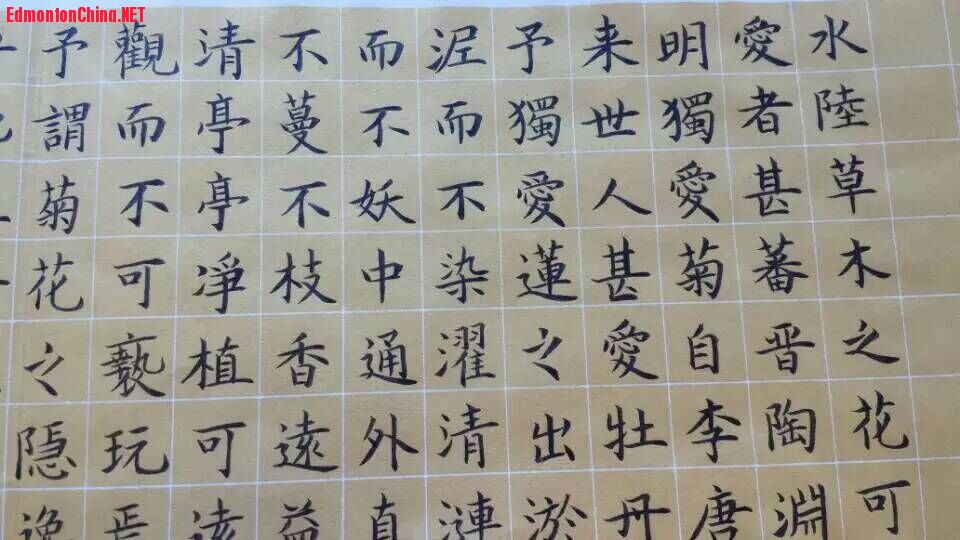 EdmontonChina.NET
水陸草木之花可
愛者甚蕃晋陶淵
明獨愛菊自李唐
来世人甚愛牡丹
予獨愛蓮之出淤
泥而不染濯清漣
而不妖中通外直
不蔓不枝香遠益
清亭亭淨植可遠
觀而不可褻玩焉
予謂菊花之隱逸